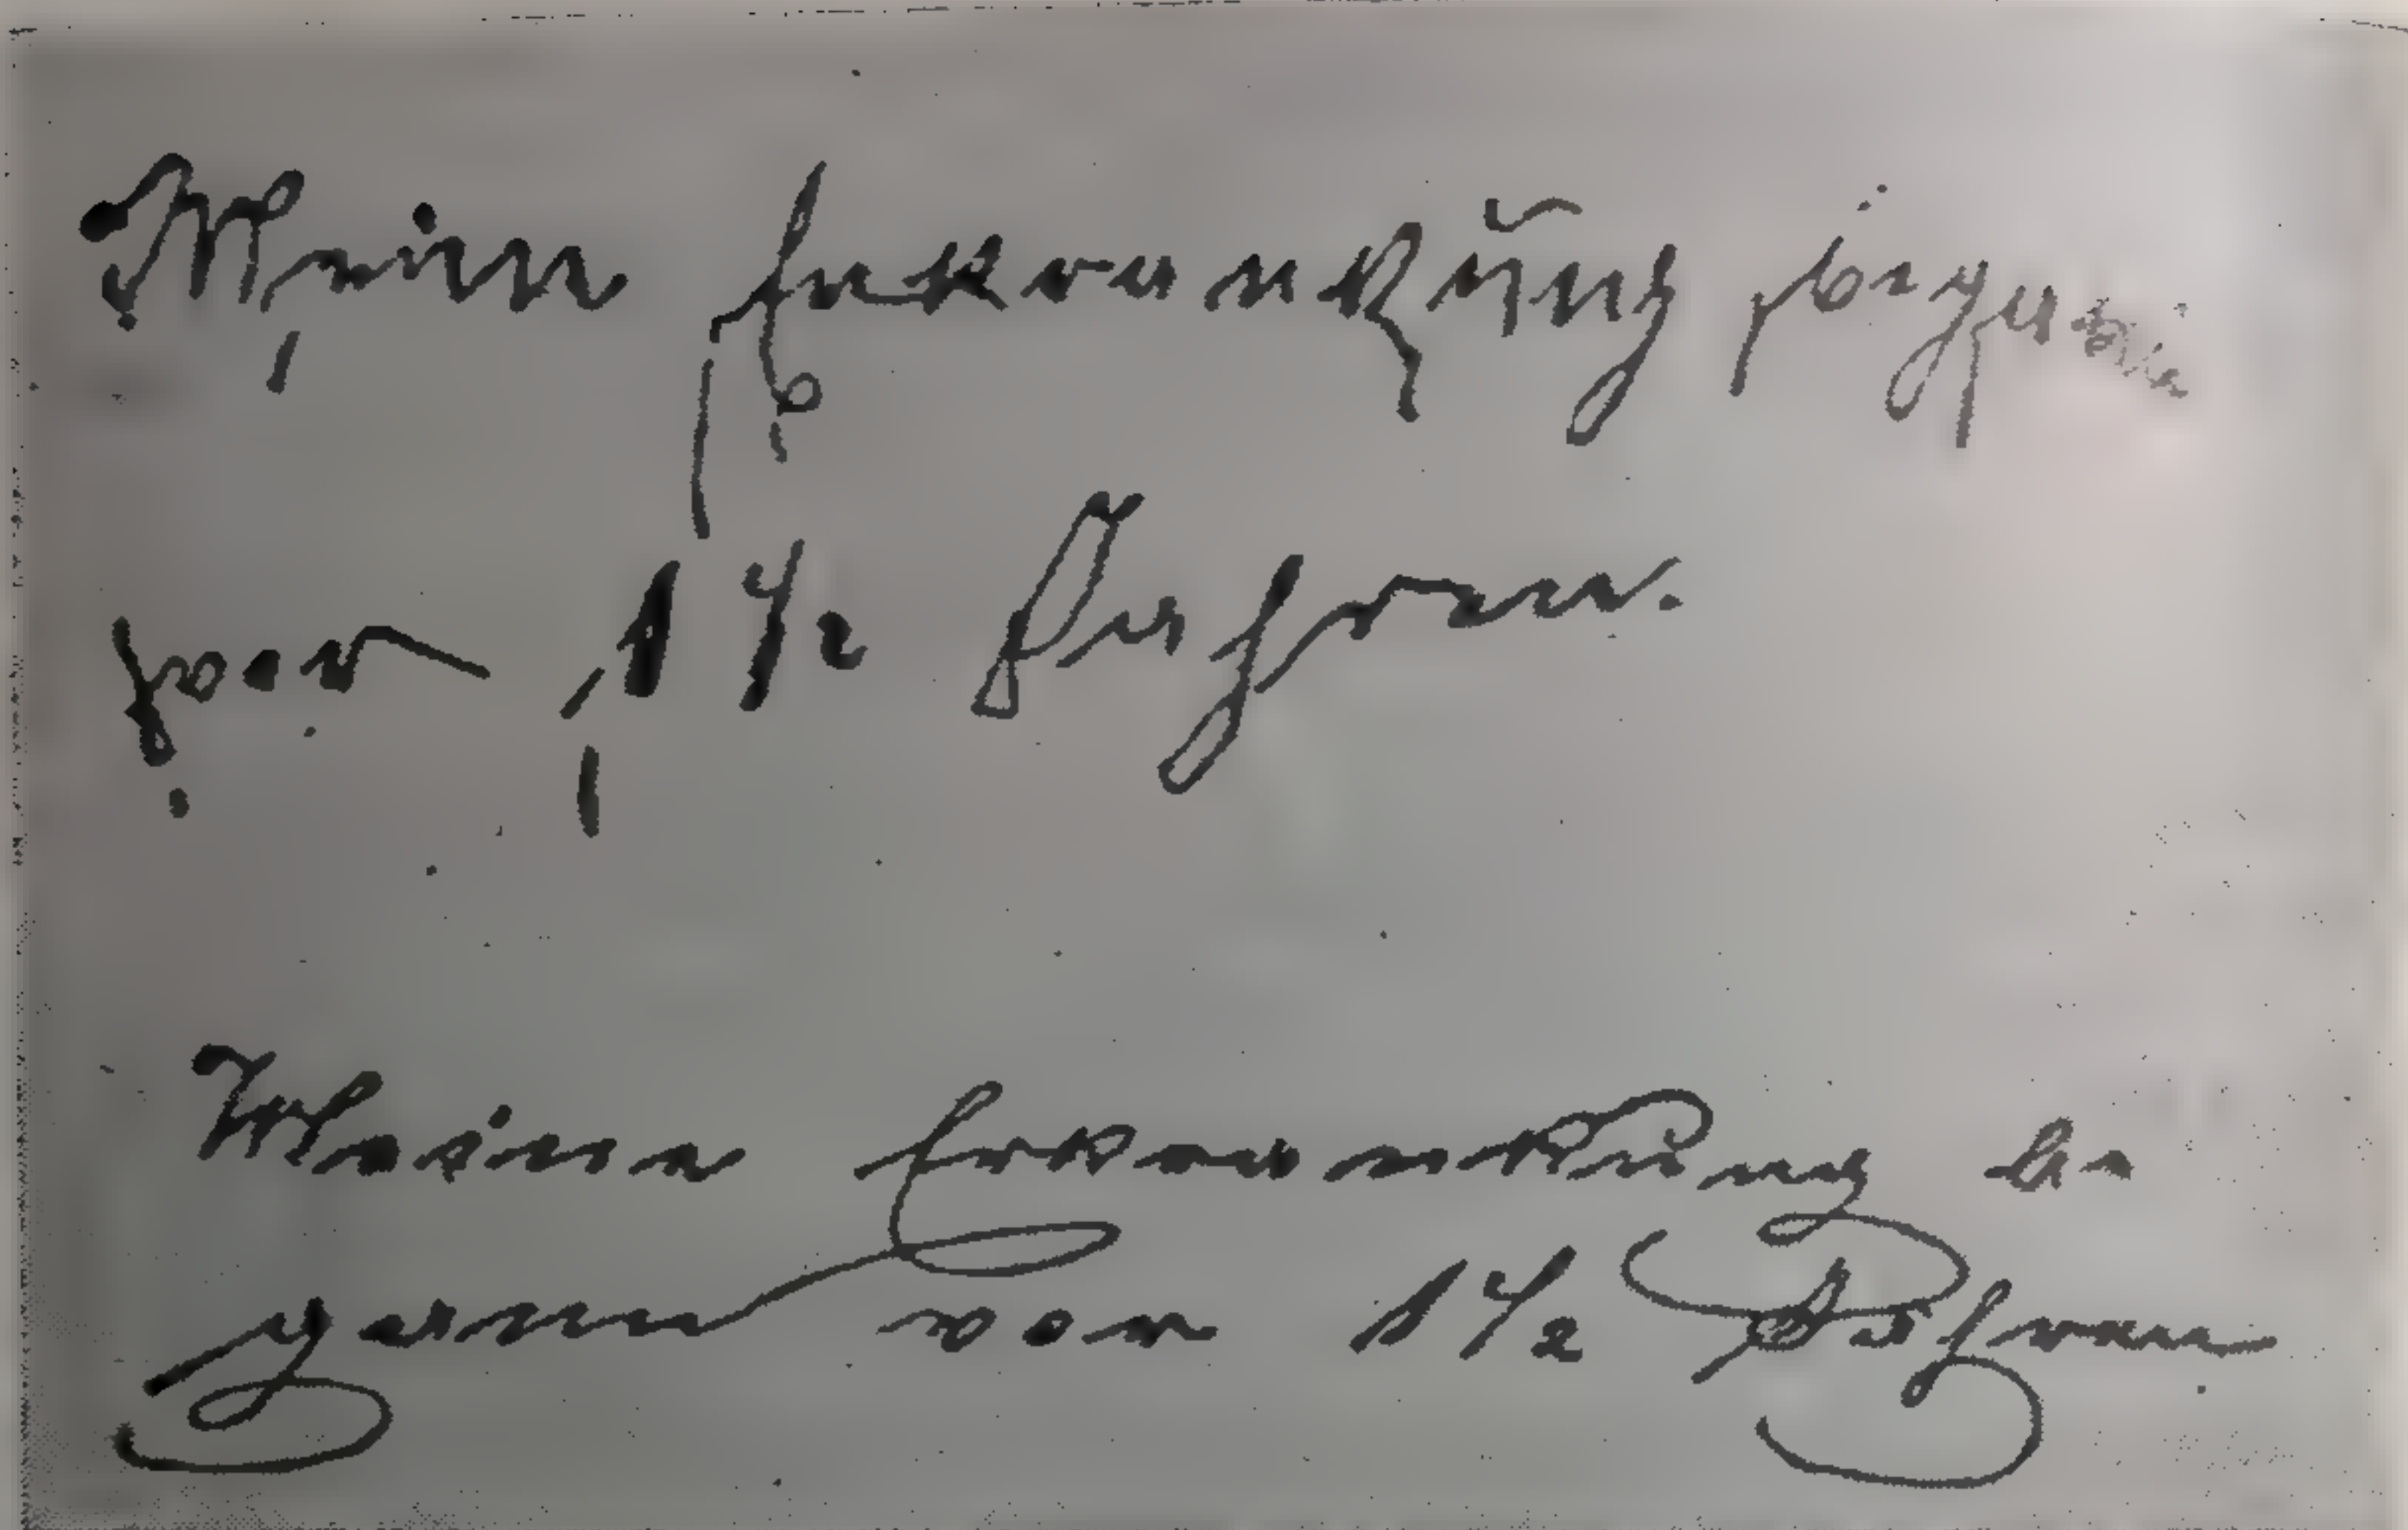 Meine Erkrankung begann
vor 1 1/2 Jahren.
Meine Erkrankung be
gann vor 1 1/2 Jahren